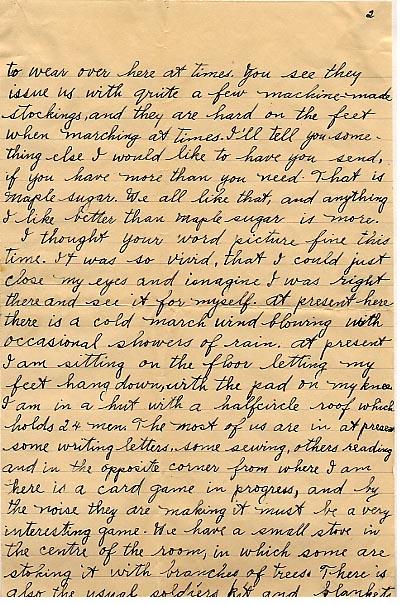 2
to wear over here at times. You see they
issue us with quite a few machine-made
stockings, and they are hard on the feet
when marching at times. I'll tell you some-
thing else I would like to have you send,
if you have more than you need. That is
maple sugar. We all like that, and anything
I like better than maple sugar is more.
I thought your word picture fine this
time. It was so vivid, that I could just
close my eyes and imagine I was right
there and see it for myself. At present here
there is a cold march wind blowing with
occasional showers of rain. At present
I am sitting on the floor letting my
feet hang down, with the pad on my knees.
I am in a hut with a halfcircle roof which
holds 24 men. The most of us are in at present
some writing letters, some sewing, others reading
and in the opposite corner from where I am
there is a card game in progress, and by
the noise they are making it must be a very
interesting game. We have a small stove in
the centre of the room, in which some are
stoking it with branches of trees. There is
also the usual soldiers kit and blankets